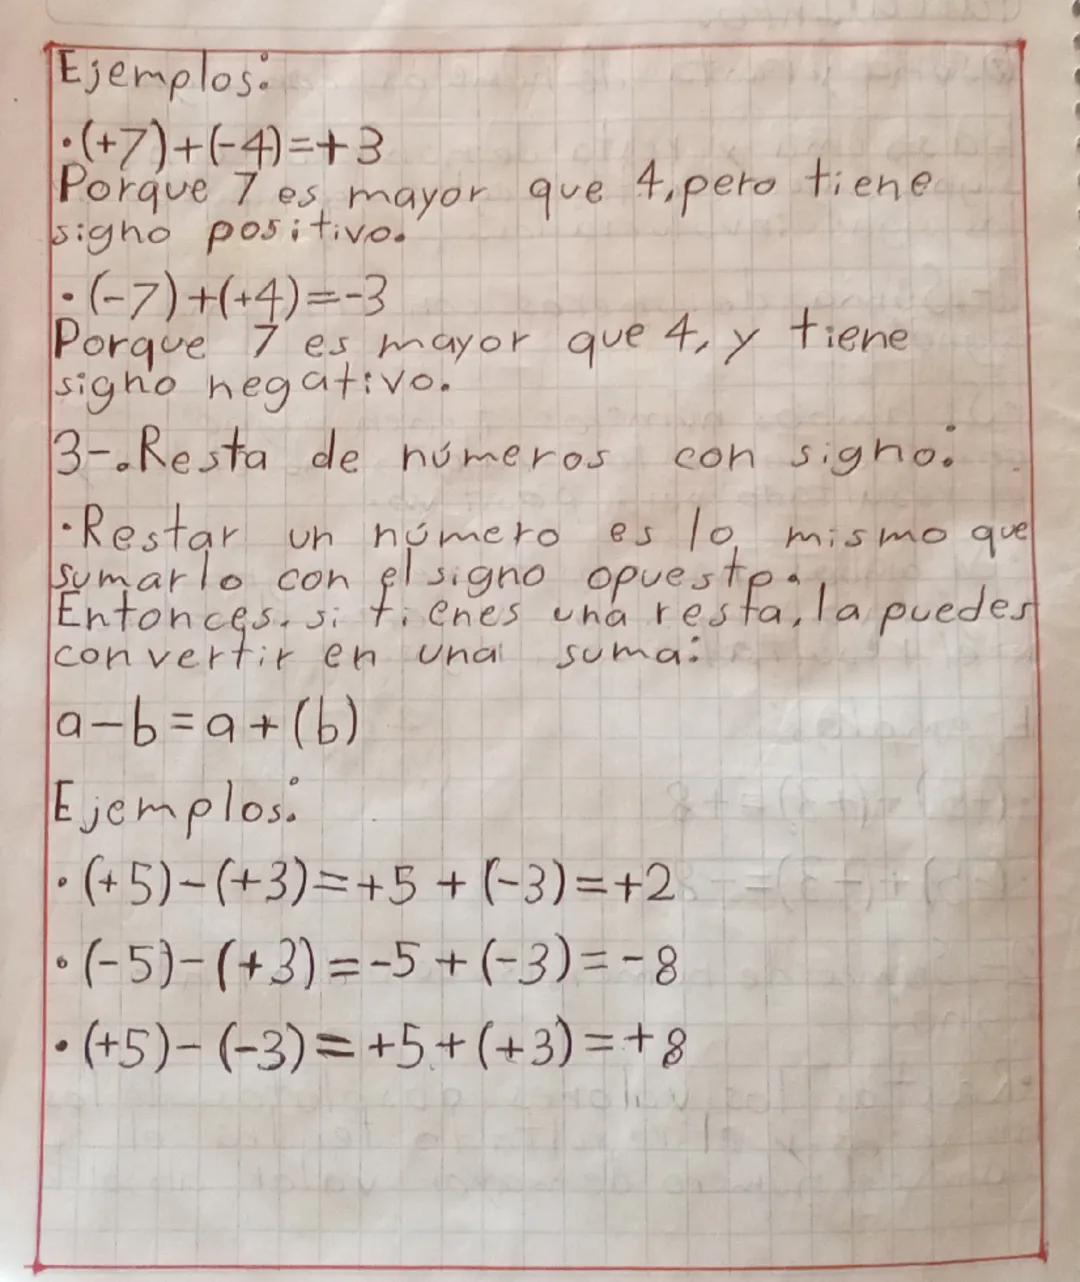 Ejemplos:
·(+7)+(-4)=+3
Porque 7 es mayor que 4, pero tiene
signo positivo.
·(-7)+(+4)=-3
Porque 7 es mayor que 4, y tiene
signo negativo.
3-.Resta de números con signo:
·Restar un número es lo mismo que
sumarlo con el signo opuesto.
Entonces, si tienes una resta, la puedes
convertir en una suma:
a-b=a+(b)
Ejemplos:
·(+5)-(+3)=+5+(-3)=+2
·(-5)-(+3)=-5+(-3)=-8
·(+5)-(-3)=+5+(+3)=+8